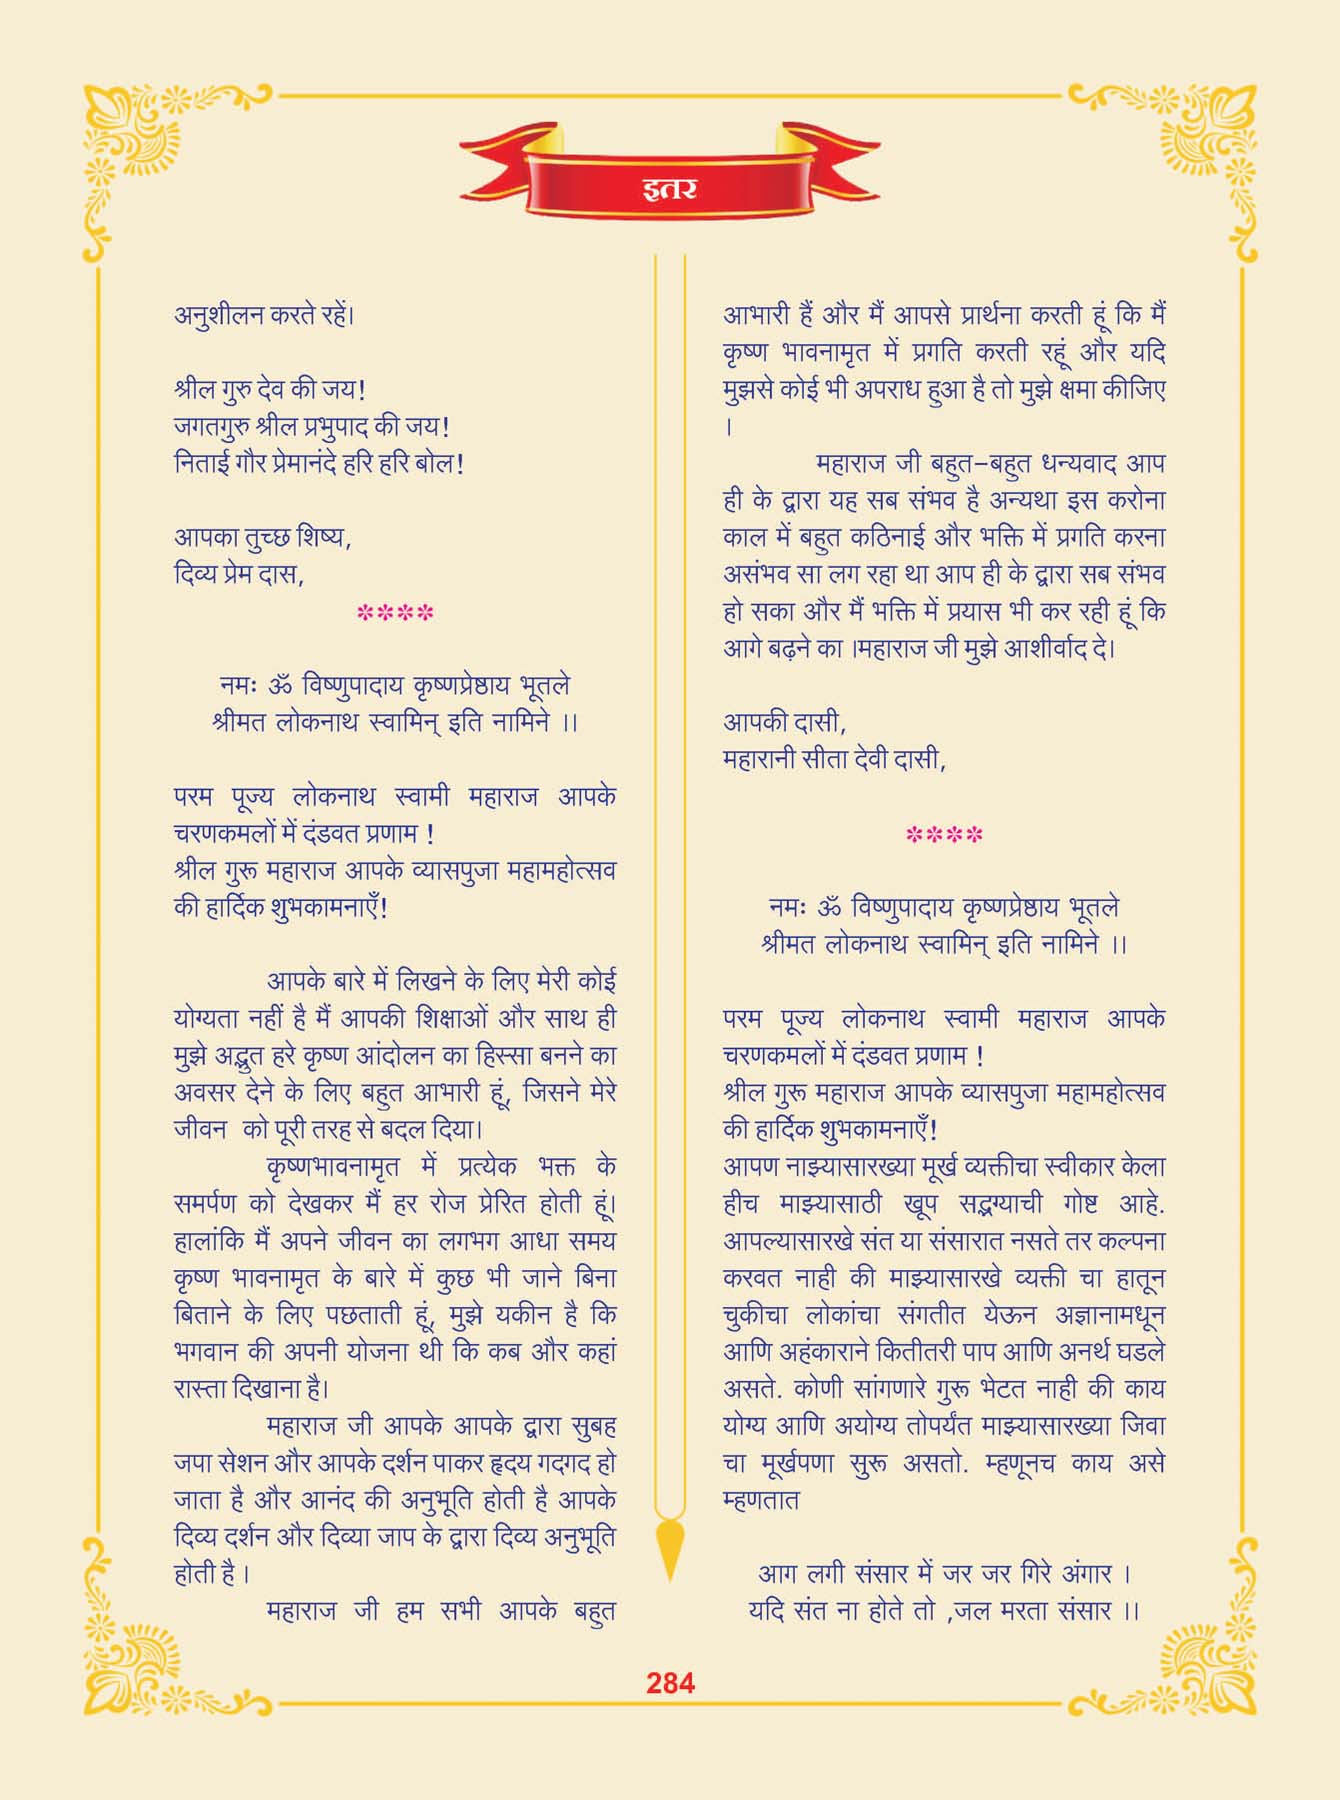 इतर
अनुशीलन करते रहें।
श्रील गुरु देव की जय!
जगतगुरु श्रील प्रभुपाद की जय!
निताई गौर प्रेमानंदे हरि हरि बोल!
आपका तुच्छ शिष्य,
दिव्य प्रेम दास,
****
नमः ॐ विष्णुपादाय कृष्णप्रेष्ठाय भूतले
श्रीमत लोकनाथ स्वामिन् इति नामिने ।।
परम पूज्य लोकनाथ स्वामी महाराज आपके
चरणकमलों में दंडवत प्रणाम !
श्रील गुरू महाराज आपके व्यासपुजा महामहोत्सव
की हार्दिक शुभकामनाएँ!
आपके बारे में लिखने के लिए मेरी कोई
योग्यता नहीं है मैं आपकी शिक्षाओं और साथ ही
मुझे अद्भुत हरे कृष्ण आंदोलन का हिस्सा बनने का
अवसर देने के लिए बहुत आभारी हूं, जिसने मेरे
जीवन को पूरी तरह से बदल दिया।
कृष्णभावनामृत में प्रत्येक भक्त के
समर्पण को देखकर मैं हर रोज प्रेरित होती हूं।
हालांकि मैं अपने जीवन का लगभग आधा समय
कृष्ण भावनामृत के बारे में कुछ भी जाने बिना
बिताने के लिए पछताती हूं, मुझे यकीन है कि
भगवान की अपनी योजना थी कि कब और कहां
रास्ता दिखाना है।
महाराज जी आपके आपके द्वारा सुबह
जपा सेशन और आपके दर्शन पाकर हृदय गदगद हो
जाता है और आनंद की अनुभूति होती है आपके
दिव्य दर्शन और दिव्या जाप के द्वारा दिव्य अनुभूति
होती है ।
महाराज जी हम सभी आपके बहुत
आभारी हैं और मैं आपसे प्रार्थना करती हूं कि मैं
कृष्ण भावनामृत में प्रगति करती रहूं और यदि
मुझसे कोई भी अपराध हुआ है तो मुझे क्षमा कीजिए
।
महाराज जी बहुत-बहुत धन्यवाद आप
ही के द्वारा यह सब संभव है अन्यथा इस करोना
काल में बहुत कठिनाई और भक्ति में प्रगति करना
असंभव सा लग रहा था आप ही के द्वारा सब संभव
हो सका और मैं भक्ति में प्रयास भी कर रही हूं कि
आगे बढ़ने का ।महाराज जी मुझे आशीर्वाद दे।
आपकी दासी,
महारानी सीता देवी दासी,
****
नमः ॐ विष्णुपादाय कृष्णप्रेष्ठाय भूतले
श्रीमत लोकनाथ स्वामिन् इति नामिने ।।
परम पूज्य लोकनाथ स्वामी महाराज आपके
चरणकमलों में दंडवत प्रणाम !
श्रील गुरू महाराज आपके व्यासपुजा महामहोत्सव
की हार्दिक शुभकामनाएँ!
आपण नाझ्यासारख्या मूर्ख व्यक्तीचा स्वीकार केला
हीच माझ्यासाठी खूप सद्भग्याची गोष्ट आहे.
आपल्यासारखे संत या संसारात नसते तर कल्पना
करवत नाही की माझ्यासारखे व्यक्ती चा हातून
चुकीचा लोकांचा संगतीत येऊन अज्ञानामधून
आणि अहंकाराने कितीतरी पाप आणि अनर्थ घडले
असते. कोणी सांगणारे गुरू भेटत नाही की काय
योग्य आणि अयोग्य तोपर्यंत माझ्यासारख्या जिवा
चा मूर्खपणा सुरू असतो. म्हणूनच काय असे
म्हणतात
आग लगी संसार में जर जर गिरे अंगार ।
यदि संत ना होते तो ,जल मरता संसार ।।
284